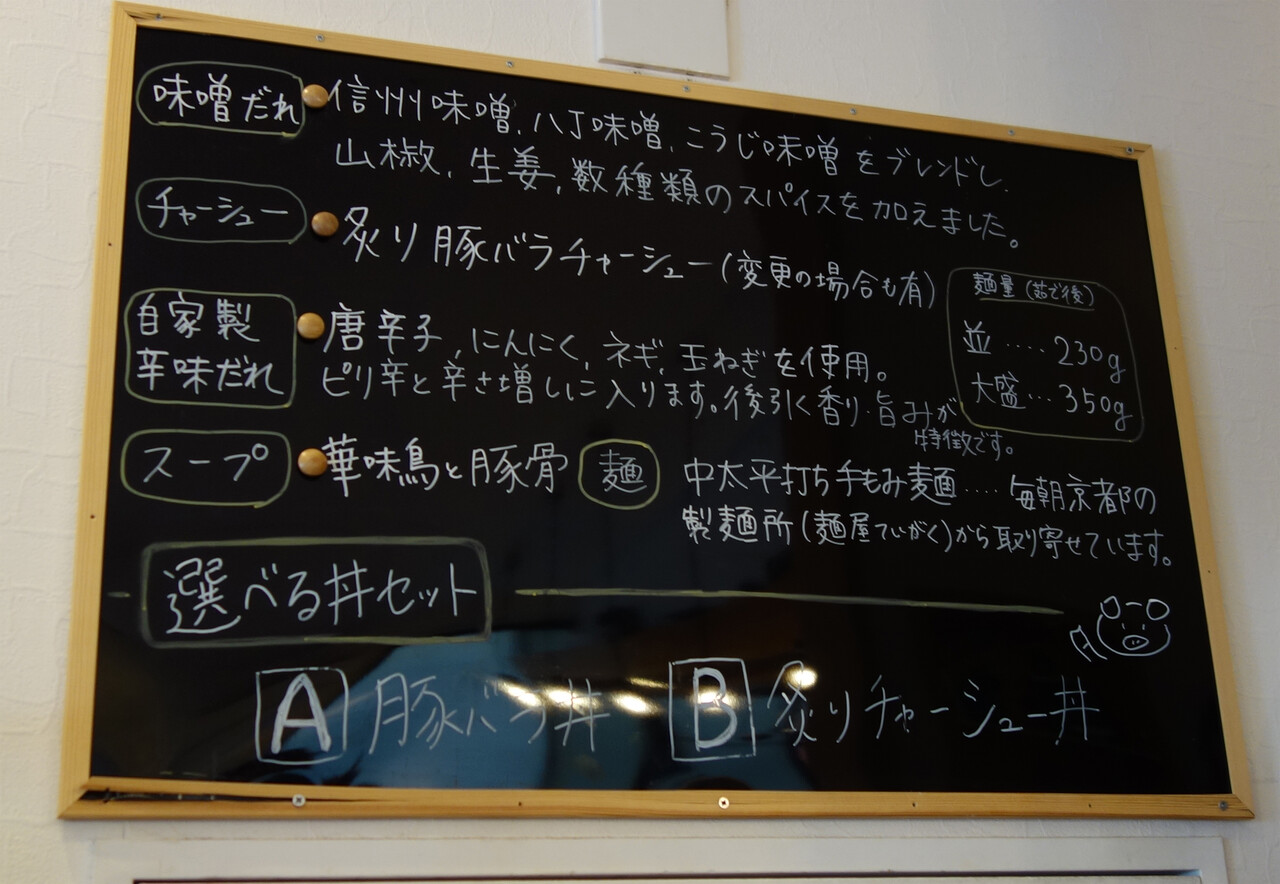 味噌だれ 信州味噌、八丁味噌、こうじ味噌をブレンドし、
山椒、生姜、数種類のスパイスを加えました。
チャーシュー 炙り豚バラチャーシュー(変更の場合も有)
麺量(茹で後)
並‥‥230g
大盛‥350g
自家製
辛味だれ
唐辛子、にんにく、ネギ、玉ねぎを使用。
ピリ辛と辛さ増しに入ります。後引く香り・旨みが
特徴です。
スープ 華味鳥と豚骨
麺 中太平打ち手もみ麺‥‥毎朝京都の
製麺所(麺屋ていがく)から取り寄せています。
選べる丼セット
A 豚バラ丼 B 炙りチャーシュー丼